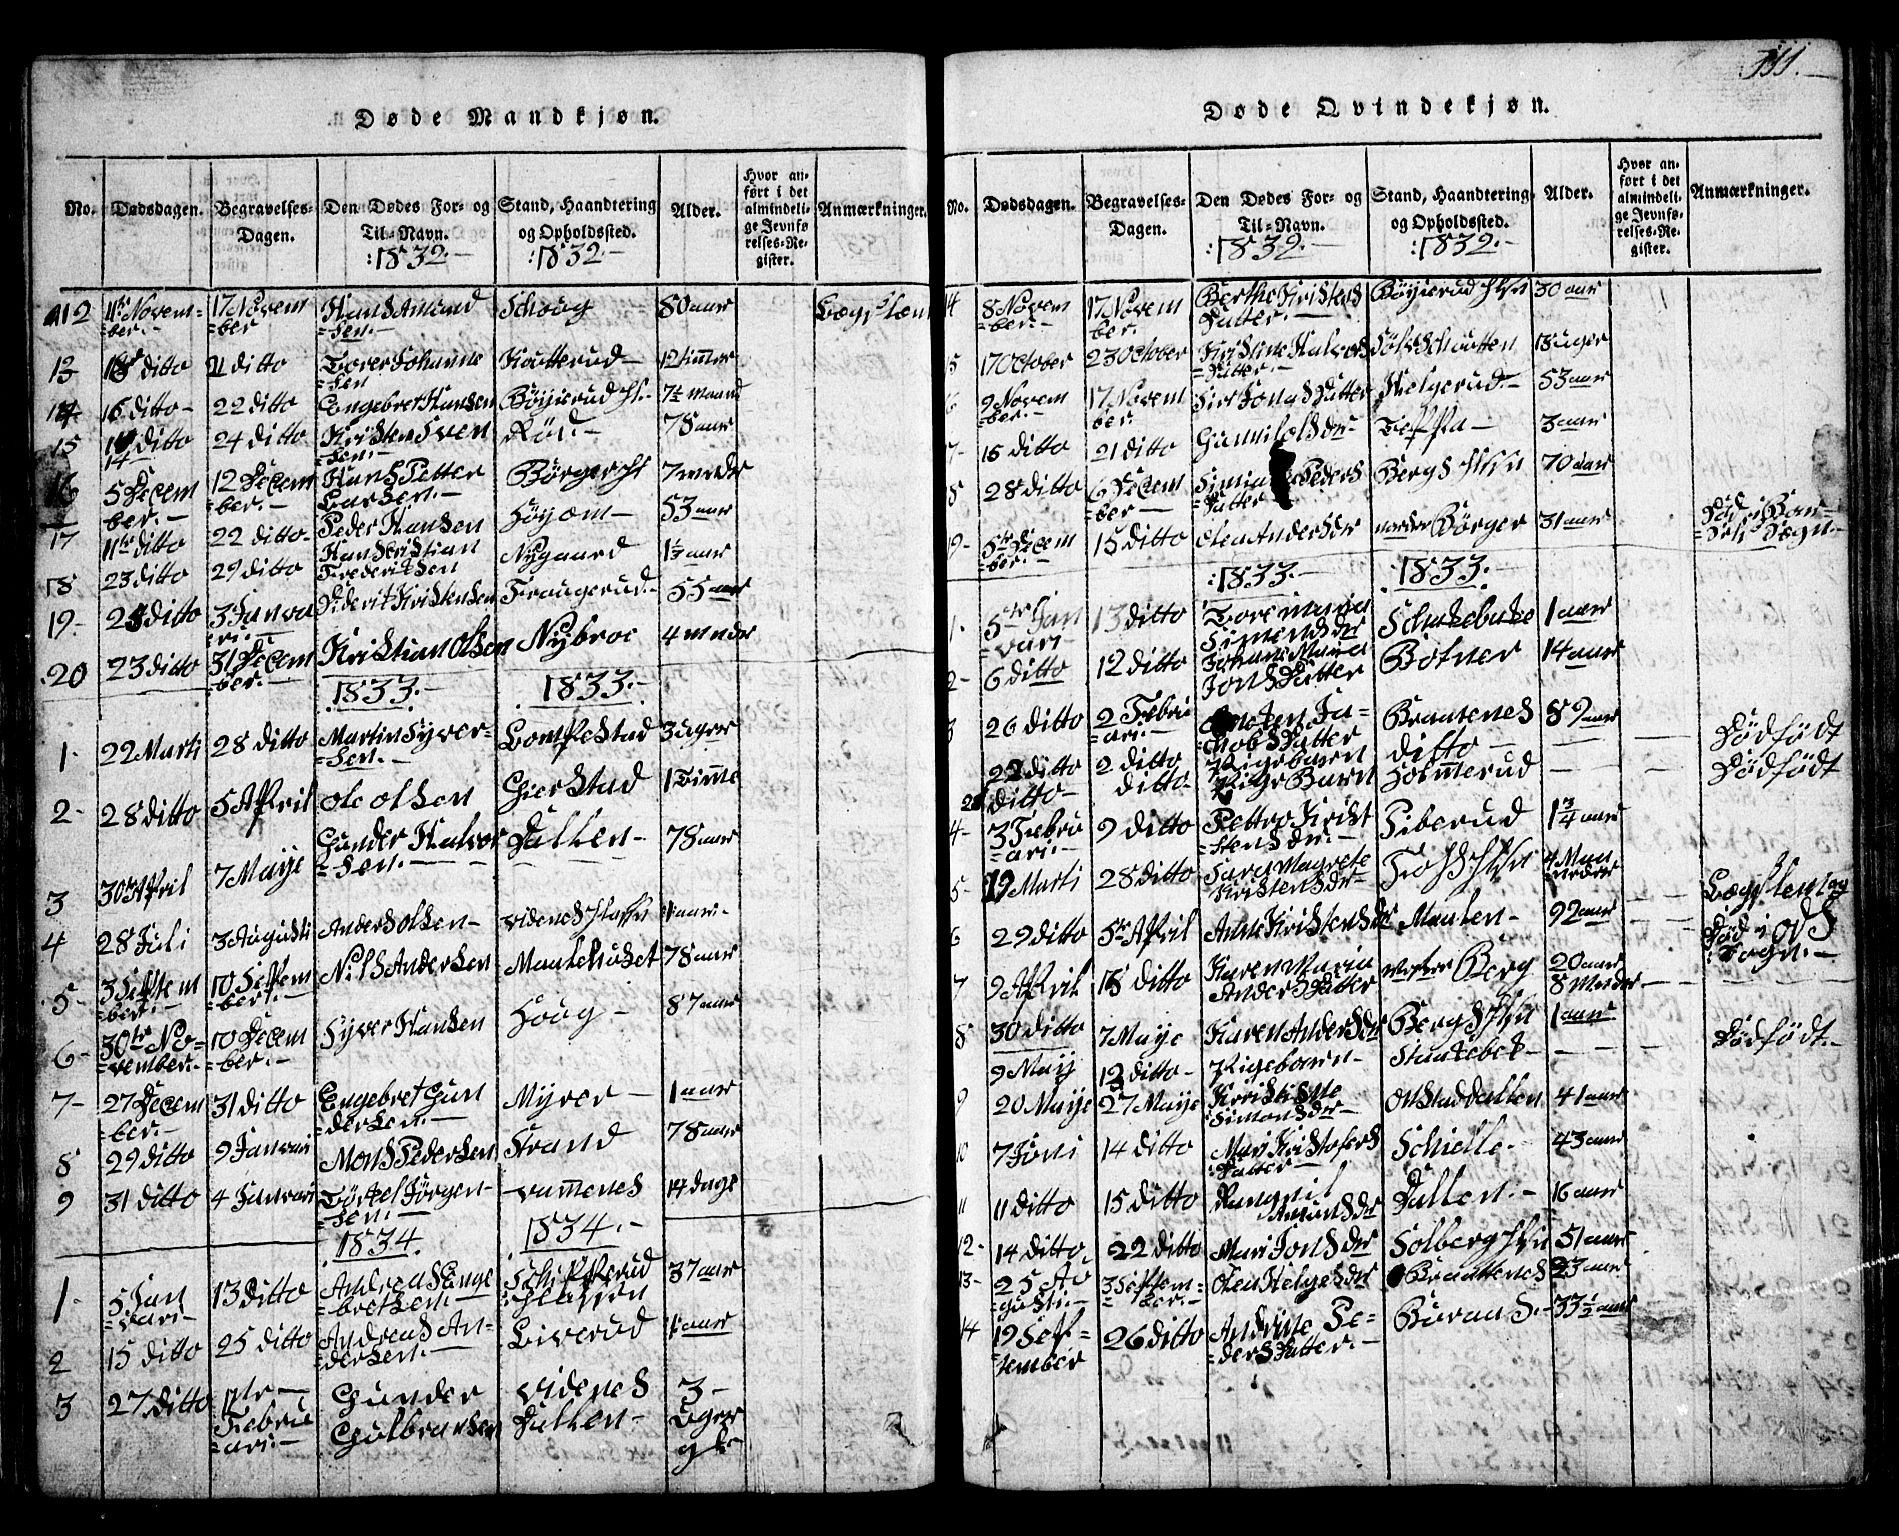 111.
Døde Mandkjøn.
No. Dødsdagen. Begravelses-Dagen. Den Dødes For- og Til-Navn. Stand, Haandtering og Opholdssted. Alder. Hvor anført i det almindelige Jevnførelses-Register. Anmærkninger.
:1832.- :1832-
12 11te Novem=ber.- 17 Novem=ber Hans Amund=sen.- Schoug 80 aar
13 18 ditto 21 ditto Tover Johanne=sen Kutterud- 12 timer
14 16 ditto- 22 ditto Engebret Hansen Böyierud 7½ maand
15 14 ditto 24 ditto Kristen Sven=sen.- Röd.- 78 aar
16 5 Decem=ber.- 12 Decem=ber.- Hans Petter Larsen.- Börger 7 mdr
17 11te ditto 22 ditto- Peder Hansen Höyem- 53 aar
18 23 ditto 29 ditto Hans Kristian Frederiksen Nygaard 1½ aar
19.- 23 ditto 3 Janva=ri.- Diderik Kristensen Fraugerud.- 55 aar
20 23 ditto 31 Decem=ber.- Kristian Olsen Nybroe 4 mnder
1833.- 1833.-
1.- 22 Marti 28 ditto Martin Syver=sen.- Lompestad 3 uger
2- 28 ditto 5 April Ole Olsen Gierstad 1 Time
3 30te April 7 Maye Gunder Halvor=sen.- Dallen- 78 aar
4 28 Juli 3 Augusti Anders Olsen- Videnes 1 aar.-
5- 3 Septem=ber.- 10 Septem=ber.- Nils Andersen Maulehuset 78 aar
6- 30te No=vember.- 10 Decem=ber.- Syver Hansen Houg- 87 aar
7- 27 Decem=ber.- 31 ditto Engebret Gun=dersen.- Myrer- 1 aar
8 29 ditto 9 Janvari Mons Pedersen Strand 78 aar
9 31 ditto 4 Janvari Törkel Jörgen=sen.- Vammenes 14 dage
1834. 1834.-
1- 5 Jan=vari- 13 ditto Andreas Enge=bretsen.- Schipperud 37 aar
2 15 ditto 25 ditto Andreas An=dersen.- Liverud 1 aar
3 27 ditto Febru=ari.- Gunder Gulbransen Videnes Dallen- 3- uger
Døde Qvindekjøn.
No. Dødsdagen. Begravelses-Dagen. Den Dødes For- og Til-Navn. Stand, Haandtering og Opholdssted. Alder. Hvor anført i det almindelige Jevnførelses-Register. Anmærkninger.
:1832.- :1832.-
14 8 Novem=ber.- 17 Novem=ber. Berthe Kristens=Datter.- Böyierud 30 aar
15 17 October 23 October Kristine Halvors=Datter.- 18 uger
16 9 Novem=ber.- 17 Novem=ber.- Siri Jonsdatter Helgerud.- 53 aar
7- 16 ditto 21 ditto Gunnild Teppa- 3 aar
8 28 ditto 6 Decem=ber- Peders=Datter Bergs 70 aar
19- 5te Decem=ber.- 15 ditto Olea Andersdr nordre Börger 31 aar
:1833.- :1833.-
1.- 5te Jan=vari- 13 ditto Tore Maria Simensdr Schakebake 1 aar
2- 6 ditto 12 ditto Johane Maria Jonsdatter Botner 14 aar
3 26 ditto 2 Febru=ari.- Ja=cobsdatter Brautenes 89 aar
22 ditto 2 ditto Pigebarn ditto- Dödfödt
28 ditto- ditto- Pige Barn Holmmerud Dödfödt
4- 3 Febru=ari.- 9 ditto Pettro Krist=ensdr.- Fiberud 1¾ aar
5- 19 Marti 28 ditto Sara Magrete Kristensdr- Foss 4 Maaneder
6 29 ditto 5te April Anne Kristensdr Maulen- 92 aar
7 9 April 18 ditto Karen Maria Andersdatter vestre Berg 20 aar 8 Mnder
8 30 ditto 7 Maye Karen Andersdr Bergs 1 aar
9 Maij 12 ditto- Pigebarn- Stuckebek- Dödfödt.-
9 20 Maye 27 Maye Kristine Simonsdr- Ottestaddallen 41 aar
10 7 Juni 14 ditto Mari Kristofers=Datter- Schielle- 43 aar
11 11 ditto 15 ditto Amonsdr Dallen.- 16 aar
12- 14 ditto 22 ditto Mari Jonsdr Solberg 51 aar
13- 25 Au=gusti.- 3 Septem=ber.- Olea Helgesdr Brautenes 23 aar
14 19 Sep=tember 26 ditto Andrine Pe=dersdatter.- Buraas.- 33½ aar